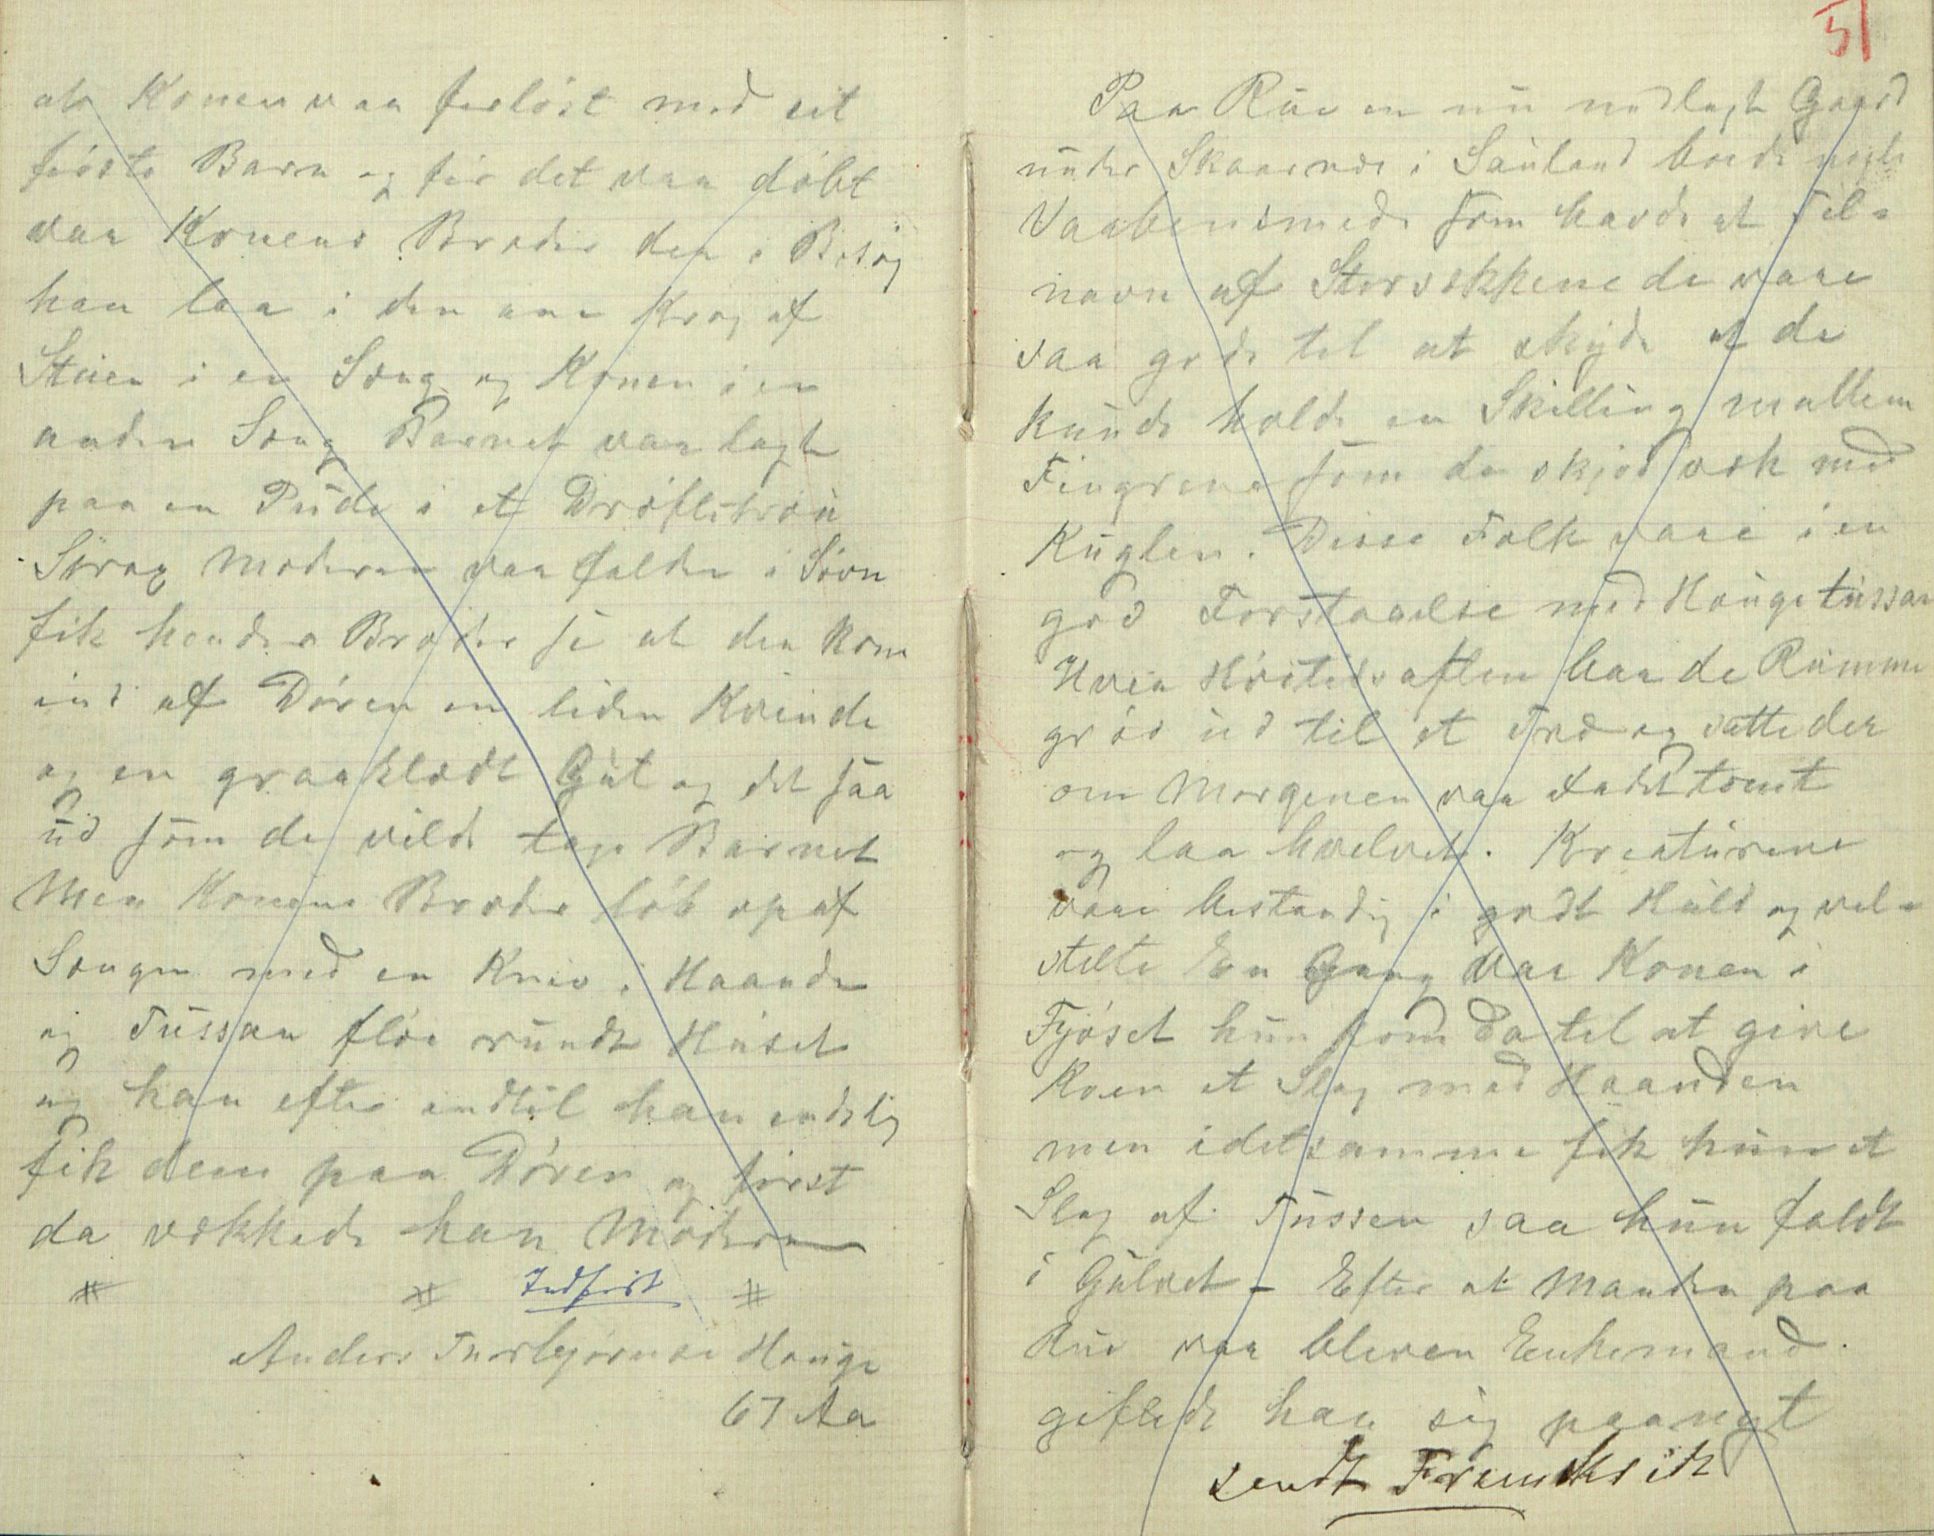 da Konen var forløst med sit
første Barn og før det var døbt
var Konens Broder der i Besøg
han laa i den ene Krog af
Stuen i en Seng og Konen i en
anden Seng Barnet var lagt
paa en Pude i et Drøftetrau
Strax Moderen var falden i Søvn
fik hendes Broder se at der kom
ind af Døren en liden Kvinde
og en graaklædt Gut og det saa
ud som de vilde tage Barnet
Men Konens Broder løb op af
Sengen med en Kniv i Haanden
og Tussan fløi rundt Huset
og han efter indtil han endelig
fik dem paa Døren og først
da vækkede han Moderen
# # Indført #
Anders Torbjørnsen Hauge
67 Aa
51
Paa Rue en nu nedlagt Gaard
under Skaarnes i Sauland boede nogle
Vaabensmede som havde et Til-
navn af Storsekkene de vare
saa gode til at skyde at de
kunde holde en Skilling mellem
Fingrene som de skjød væk med
Kuglen. Disse Folk vare i en
god Forstaaelse med Haugetussan
Hver Høitidsaften bar de Rømme
grød ud til et Træ og satte der
om Morgenen var Fadet tomt
og laa hvelvet. Kreaturene
vare bestandig i godt Huld og vel-
stelte En Gang var Konen i
Fjøset hun kom da til at give
Koen et Slag med Haanden
men idetsamme fik hun et
Slag af Tussen saa hun faldt
i Gulvet – Efter at Manden paa
Rue var bleven Enkemand.
giftede han sig paanyt
sendt